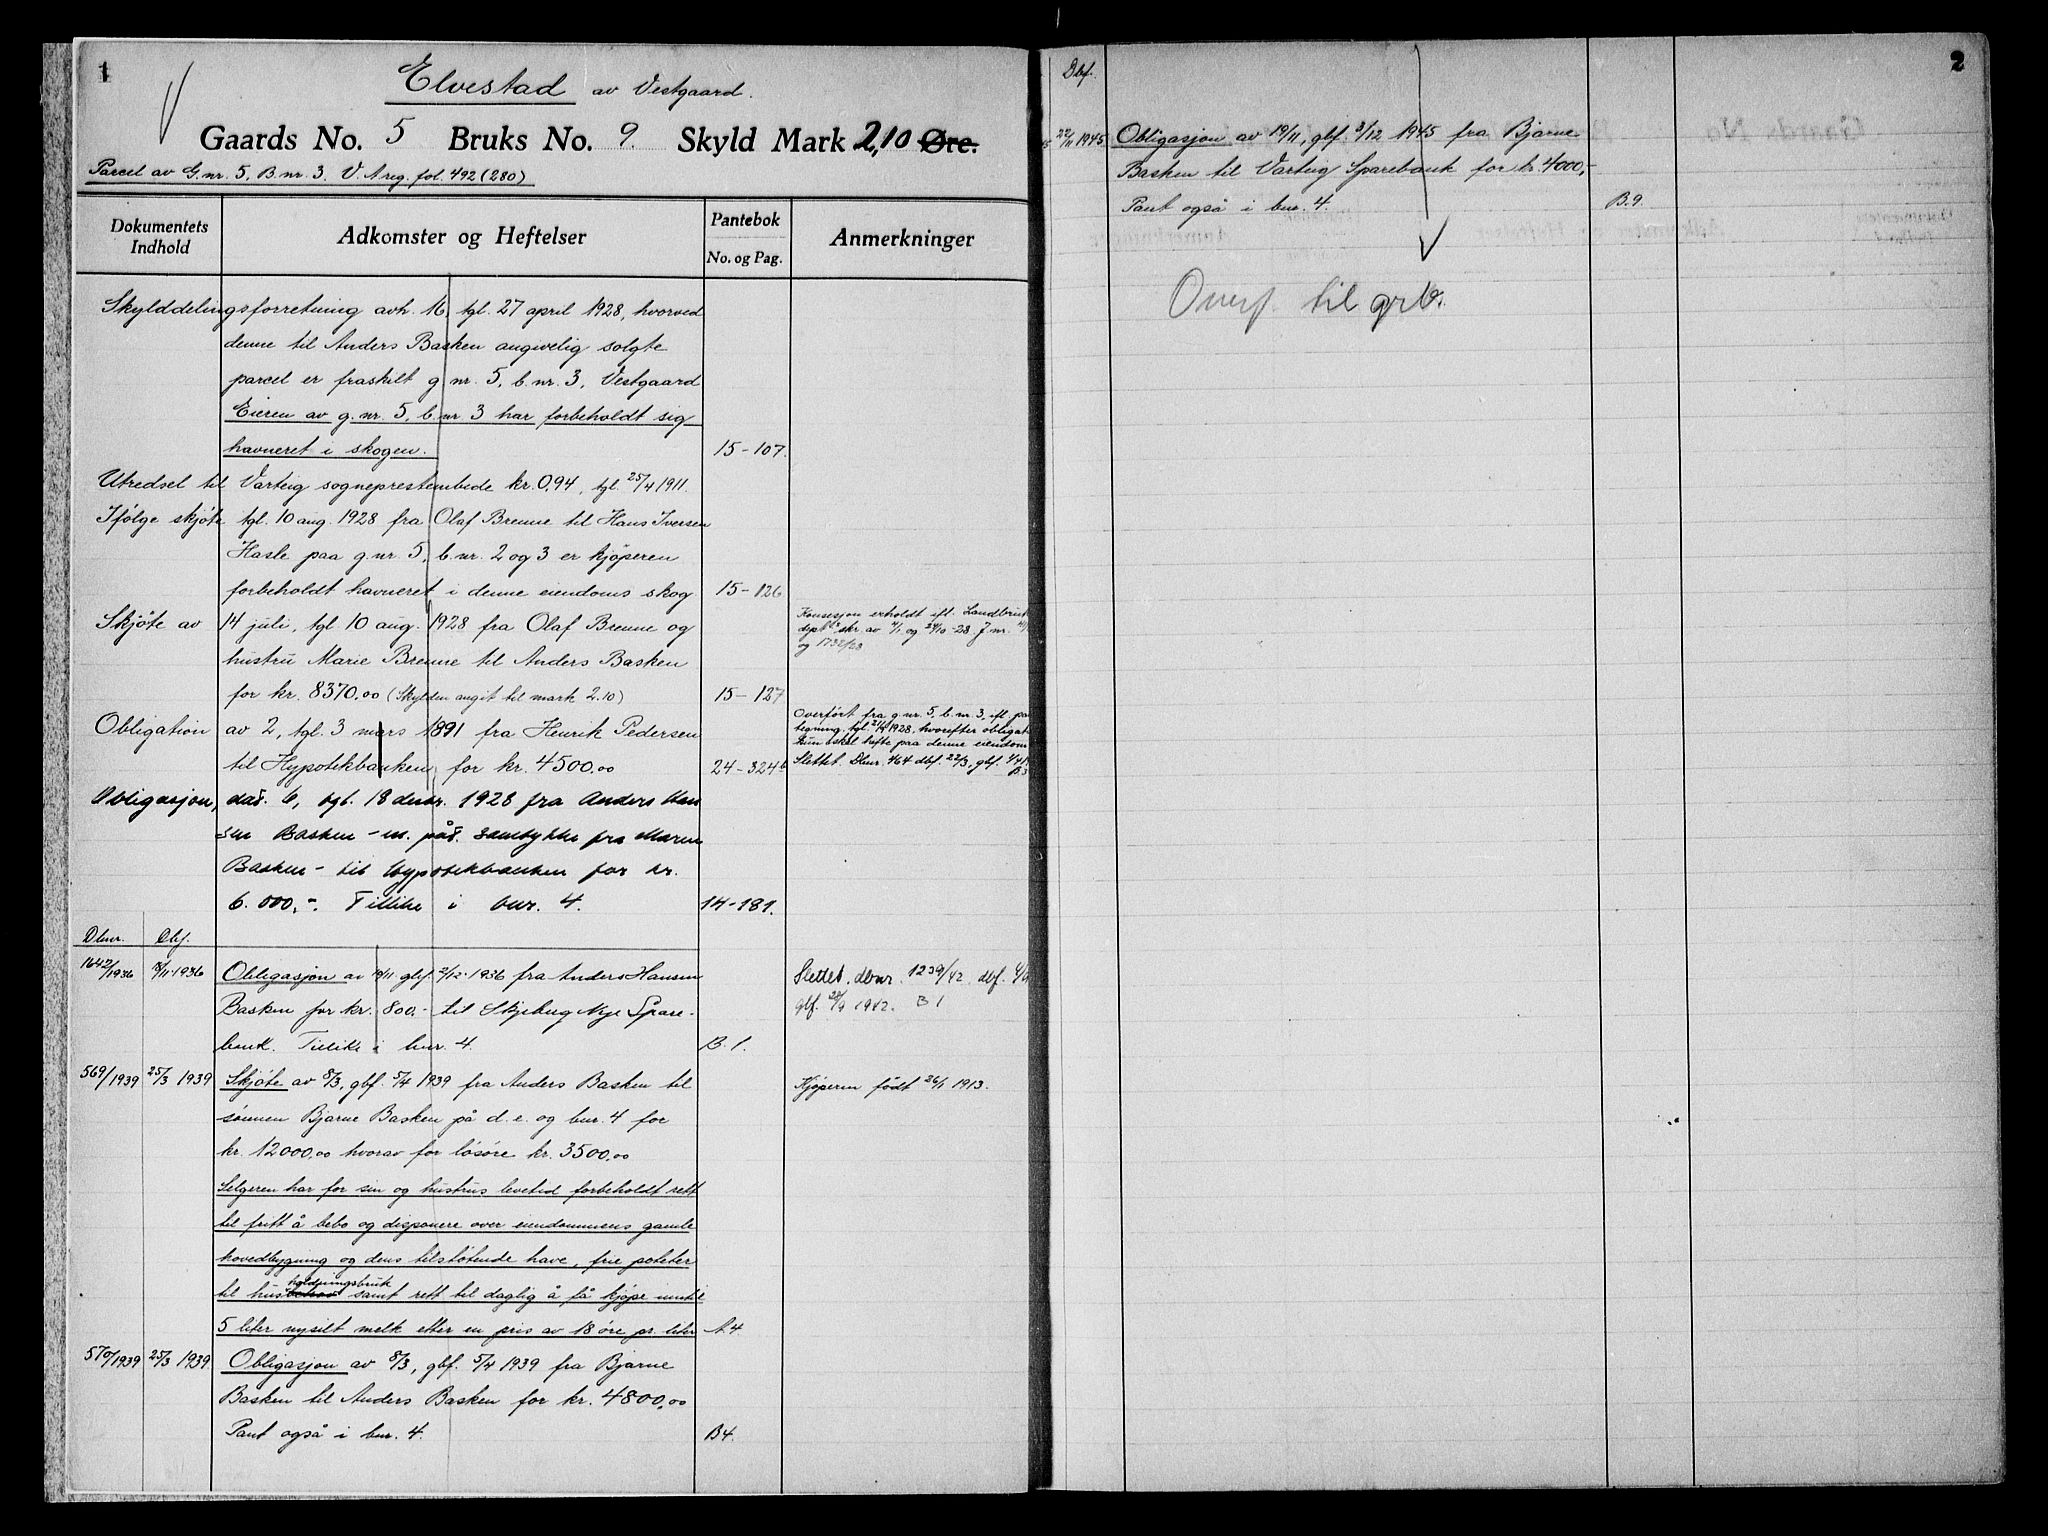 1
Elvestad av Vestgaard.
Gaards No. 5 Bruks No. 9. Skyld Mark 2,10 Øre.
Parcel av G.nr. 5, B.nr. 3. V. A reg. fol. 492 (280)
Dokumentets Indhold
Adkomster og Heftelser
Pantebok
No. og Pag.
Anmerkninger
Skylddelingsforretning avh. 16, tgl. 27 april 1928, hvorved
denne til Anders Basken angivelig solgte
parcel er fraskilt g nr. 5, b. nr. 3, Vestgaard
Eieren av g. nr. 5, b. nr 3 har forbeholdt sig
havneret i skogen. 15-107.
Utredsel til Varteig sogneprestembede kr. 0,94, tgl. 25/4 1911.
Ifølge skjøte tgl. 10 aug. 1928 fra Olaf Brenne til Hans Iversen
Hasle paa g. nr 5, b. nr. 2 og 3 er kjøperen
forbeholdt havneret i denne eiendoms skog 15-126
Skjøte av 14 juli, tgl. 10 aug. 1928 fra Olaf Brenne og
hustru Marie Brenne til Anders Basken
for kr. 8370,00 (Skylden angit til mark 2.10) 15-127
Konsesjon erholdt ifl. Landbruk
dept's skr. av
og 24/10-28 J. nr.
og 1732/28
Obligation av 2, tgl. 3 mars 1891 fra Henrik Pedersen
til Hypotekbanken for kr. 4500,00 24-324b
Overført fra g. nr. 5, b. nr. 3, ifl. pa
tegning, tgl. 21/11 1928, hvorefter obligat
kun skal hefte paa denne eiendom
Slettet. Dbnr. 464 dbf. 22/3, gbf.
B.3
Obligasjon, dat. 6, tgl. 18 desbr. 1928 fra Anders Han
sen Basken - m. påt. samtykke fra Maren
Basken - til Hypotekbanken for kr.
6.000,-. Tillike i bnr. 4. 14-181.
Dbnr. Dbf.
1642/1936 18/11-1936 Obligasjon av 19/11 gbf. 2/12-1936 fra Anders Hansen
Basken for kr. 800.- til Skjeberg Nye Spare-
bank. Tillike i bnr. 4. B. 1.
Slettet. dbnr. 1239/42, dbf.
gbf. 28/9 1942. B 1
569/1939 25/3 1939 Skjøte av 8/3, gbf. 5/4 1939 fra Anders Basken til
sønnen Bjarne Basken på d. e. og bnr. 4 for
kr. 12000,00 hvorav for løsøre kr. 3500,00
Kjøperen født 26/1 1913.
Selgeren har for sin og hustrus levetid forbeholdt rett
til fritt å bebo og disponere over eiendommens gamle
hovedbygning og dens tilstøtende have, frie poteter
til husholdningsbruk samt rett til daglig å få kjøpe inntil
5 liter nysilt melk etter en pris av 18 øre pr. liter A.4
570/1939 25/3 1939. Obligasjon av 8/3, gbf. 5/4 1939 fra Bjarne
Basken til Anders Basken for kr. 4800,00
Pant også i bnr. 4. B4.
2
Dbf.
22/11 1945 Obligasjon av 19/11, gbf. 3/12 1945 fra Bjarne
Basken til Varteig Sparebank for kr. 4000,-
Pant også i bnr. 4. B.9.
Overf. til grb.